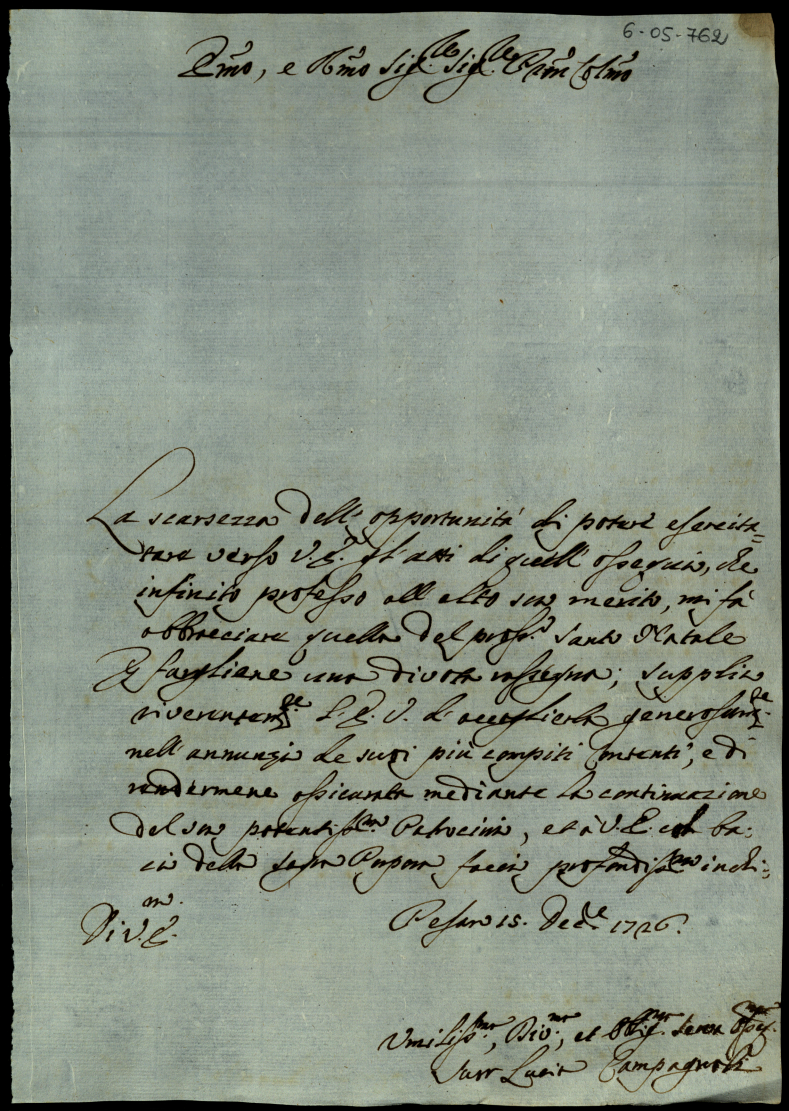 6-05-762
Em̃o, e Rm̃o Sig.re Sig.re Pr̃on Col̃mo
La scarsezza dell'opportunità di poture esercita=
tare verso V. E. gl'atti di quell'ossequio, che
infinito professo all'alto suo merito, mi fà
abbracciare quella del pross.o Santo Natale
P fargliene una divota rassegna; supplico
riverentem.te L'E. V. di accoglierla generosam.te
nell'annunzio de suoi più compiti contenti, e di
rendermene assicurata mediante la continuazione
del suo potentiss.mo Patrocinio, et à V. E. col ba-
cio della Sagra Porpora faccio profondiss.mo inchi-
no.
Di V. E.
Pesaro 15. Dec.e 1726.
Umiliss.ma, Div.ma, et Obblig.ma Serva Osseq.ma
Suor Lucia Campagnoli